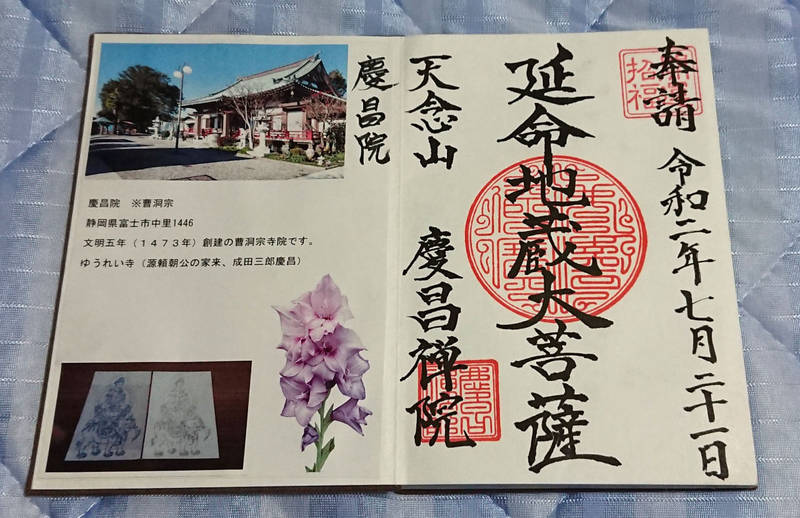 奉請
招福
令和二年七月二十一日
延命地蔵大菩薩
天念山
慶昌禅院
慶昌院
慶昌院　※曹洞宗
静岡県富士市中里1446
文明五年（１４７３年）創建の曹洞宗寺院です。
ゆうれい寺（源頼朝公の家来、成田三郎慶昌）